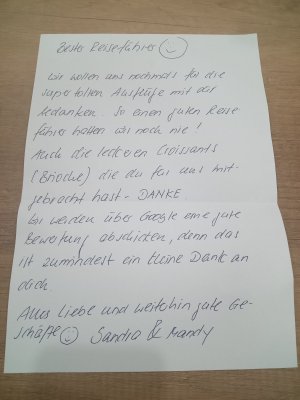 Bester Reiseführer
Wir wollen uns nochmals für die
supertollen Ausflüge mit dir
bedanken. So einen guten Reise
führer hatten wir noch nie!
Auch die leckeren Croissants
(Brioche) die du für uns mit-
gebracht hast - DANKE.
Wir werden über Google eine gute
Bewertung abschicken, denn das
ist zumindest ein kleine Dank an
dich.
Alles Liebe und weiterhin gute Ge-
schäfte Sandra & Mandy